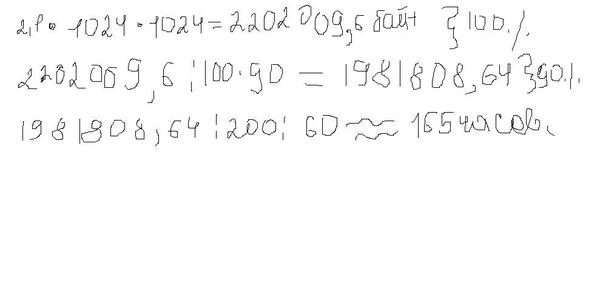 2,1 · 1024 · 1024 = 2202009,6 байт } 100%
2202009,6 : 100 · 90 = 1981808,64 } 90%
1981808,64 : 200 : 60 ≈ 165 часов.